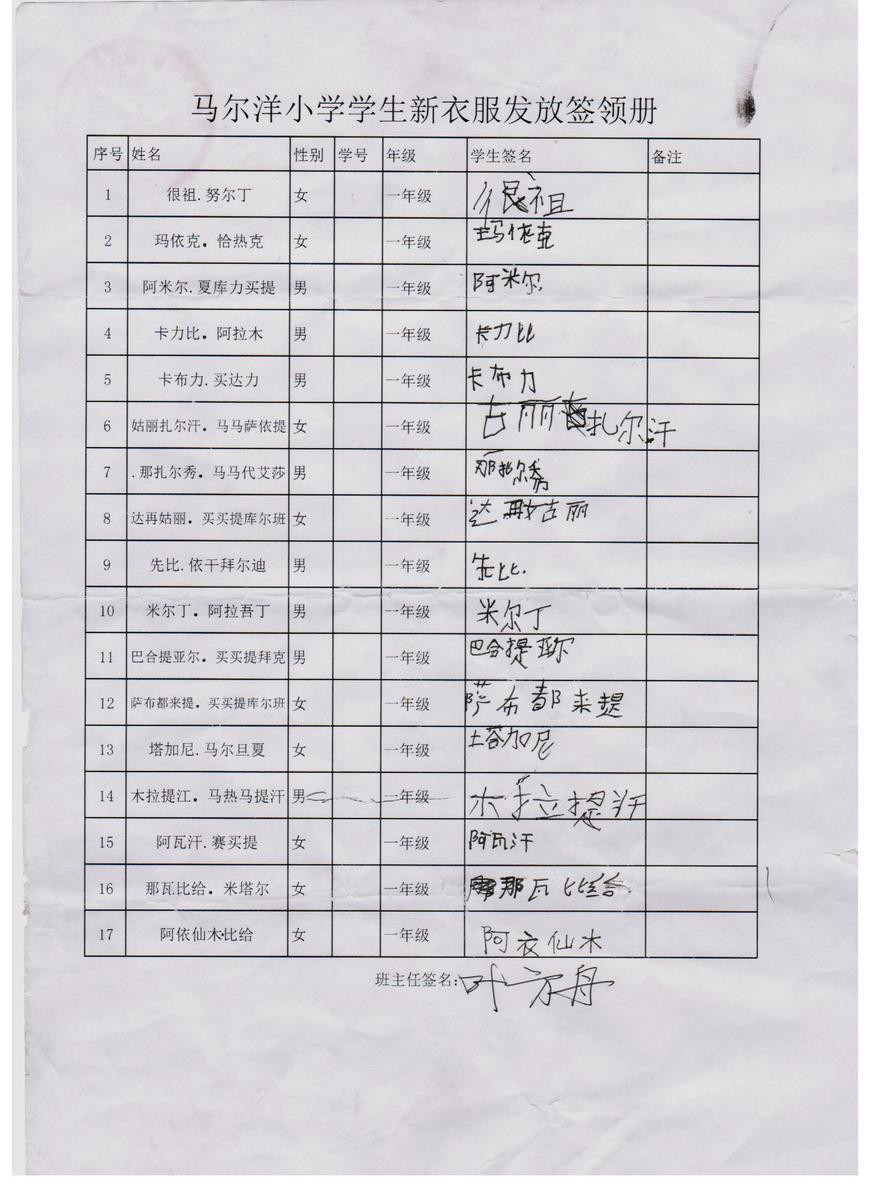 马尔洋小学学生新衣服发放签领册
序号 姓名 性别 学号 年级 学生签名 备注
1 很祖.努尔丁 女 一年级 很祖
2 玛依克。恰热克 女 一年级 玛依克
3 阿米尔.夏库力买提 男 一年级 阿米尔
4 卡力比。阿拉木 男 一年级 卡力比
5 卡布力.买达力 男 一年级 卡布力
6 姑丽扎尔汗。马马萨依提 女 一年级 古丽扎尔汗
7 .那扎尔秀。马马代艾莎 男 一年级 那扎尔秀
8 达再姑丽。买买提库尔班 女 一年级 达再古丽
9 先比.依干拜尔迪 男 一年级 先比.
10 米尔丁。阿拉吾丁 男 一年级 米尔丁
11 巴合提亚尔。买买提拜克 男 一年级 巴合提亚尔
12 萨布都来提。买买提库尔班 女 一年级 萨布都来提
13 塔加尼.马尔旦夏 女 一年级 塔加尼
14 木拉提江。马热马提汗 男 一年级 木拉提汗
15 阿瓦汗.赛买提 女 一年级 阿瓦汗
16 那瓦比给。米塔尔 女 一年级 那瓦比给.
17 阿依仙木·比给 女 一年级 阿衣仙木
班主任签名:叶尔舟